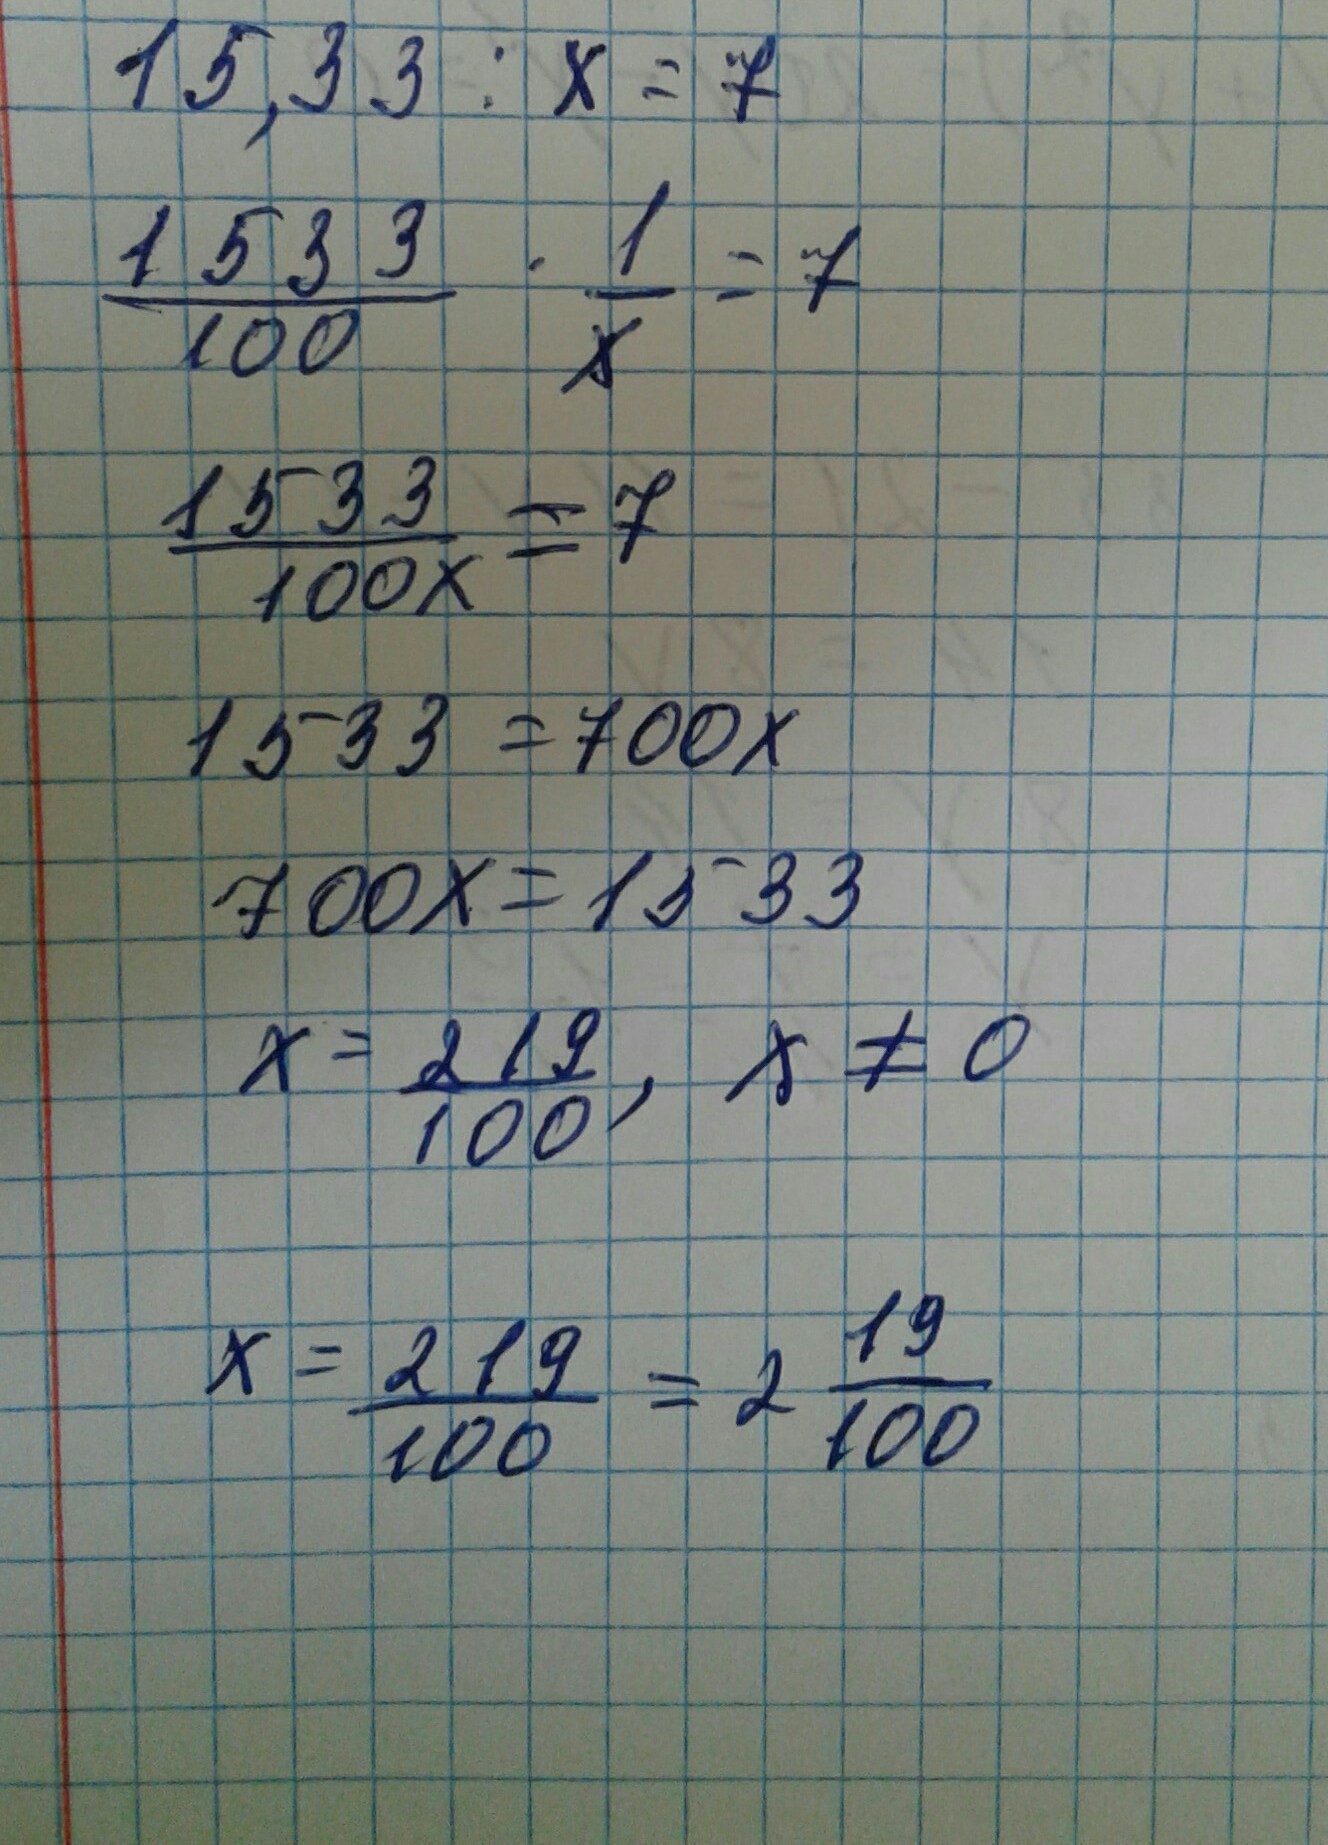 15,33 : x = 7
1533/100 · 1/x = 7
1533/100x = 7
1533 = 700x
700x = 1533
x = 219/100, x ≠ 0
x = 219/100 = 2 19/100